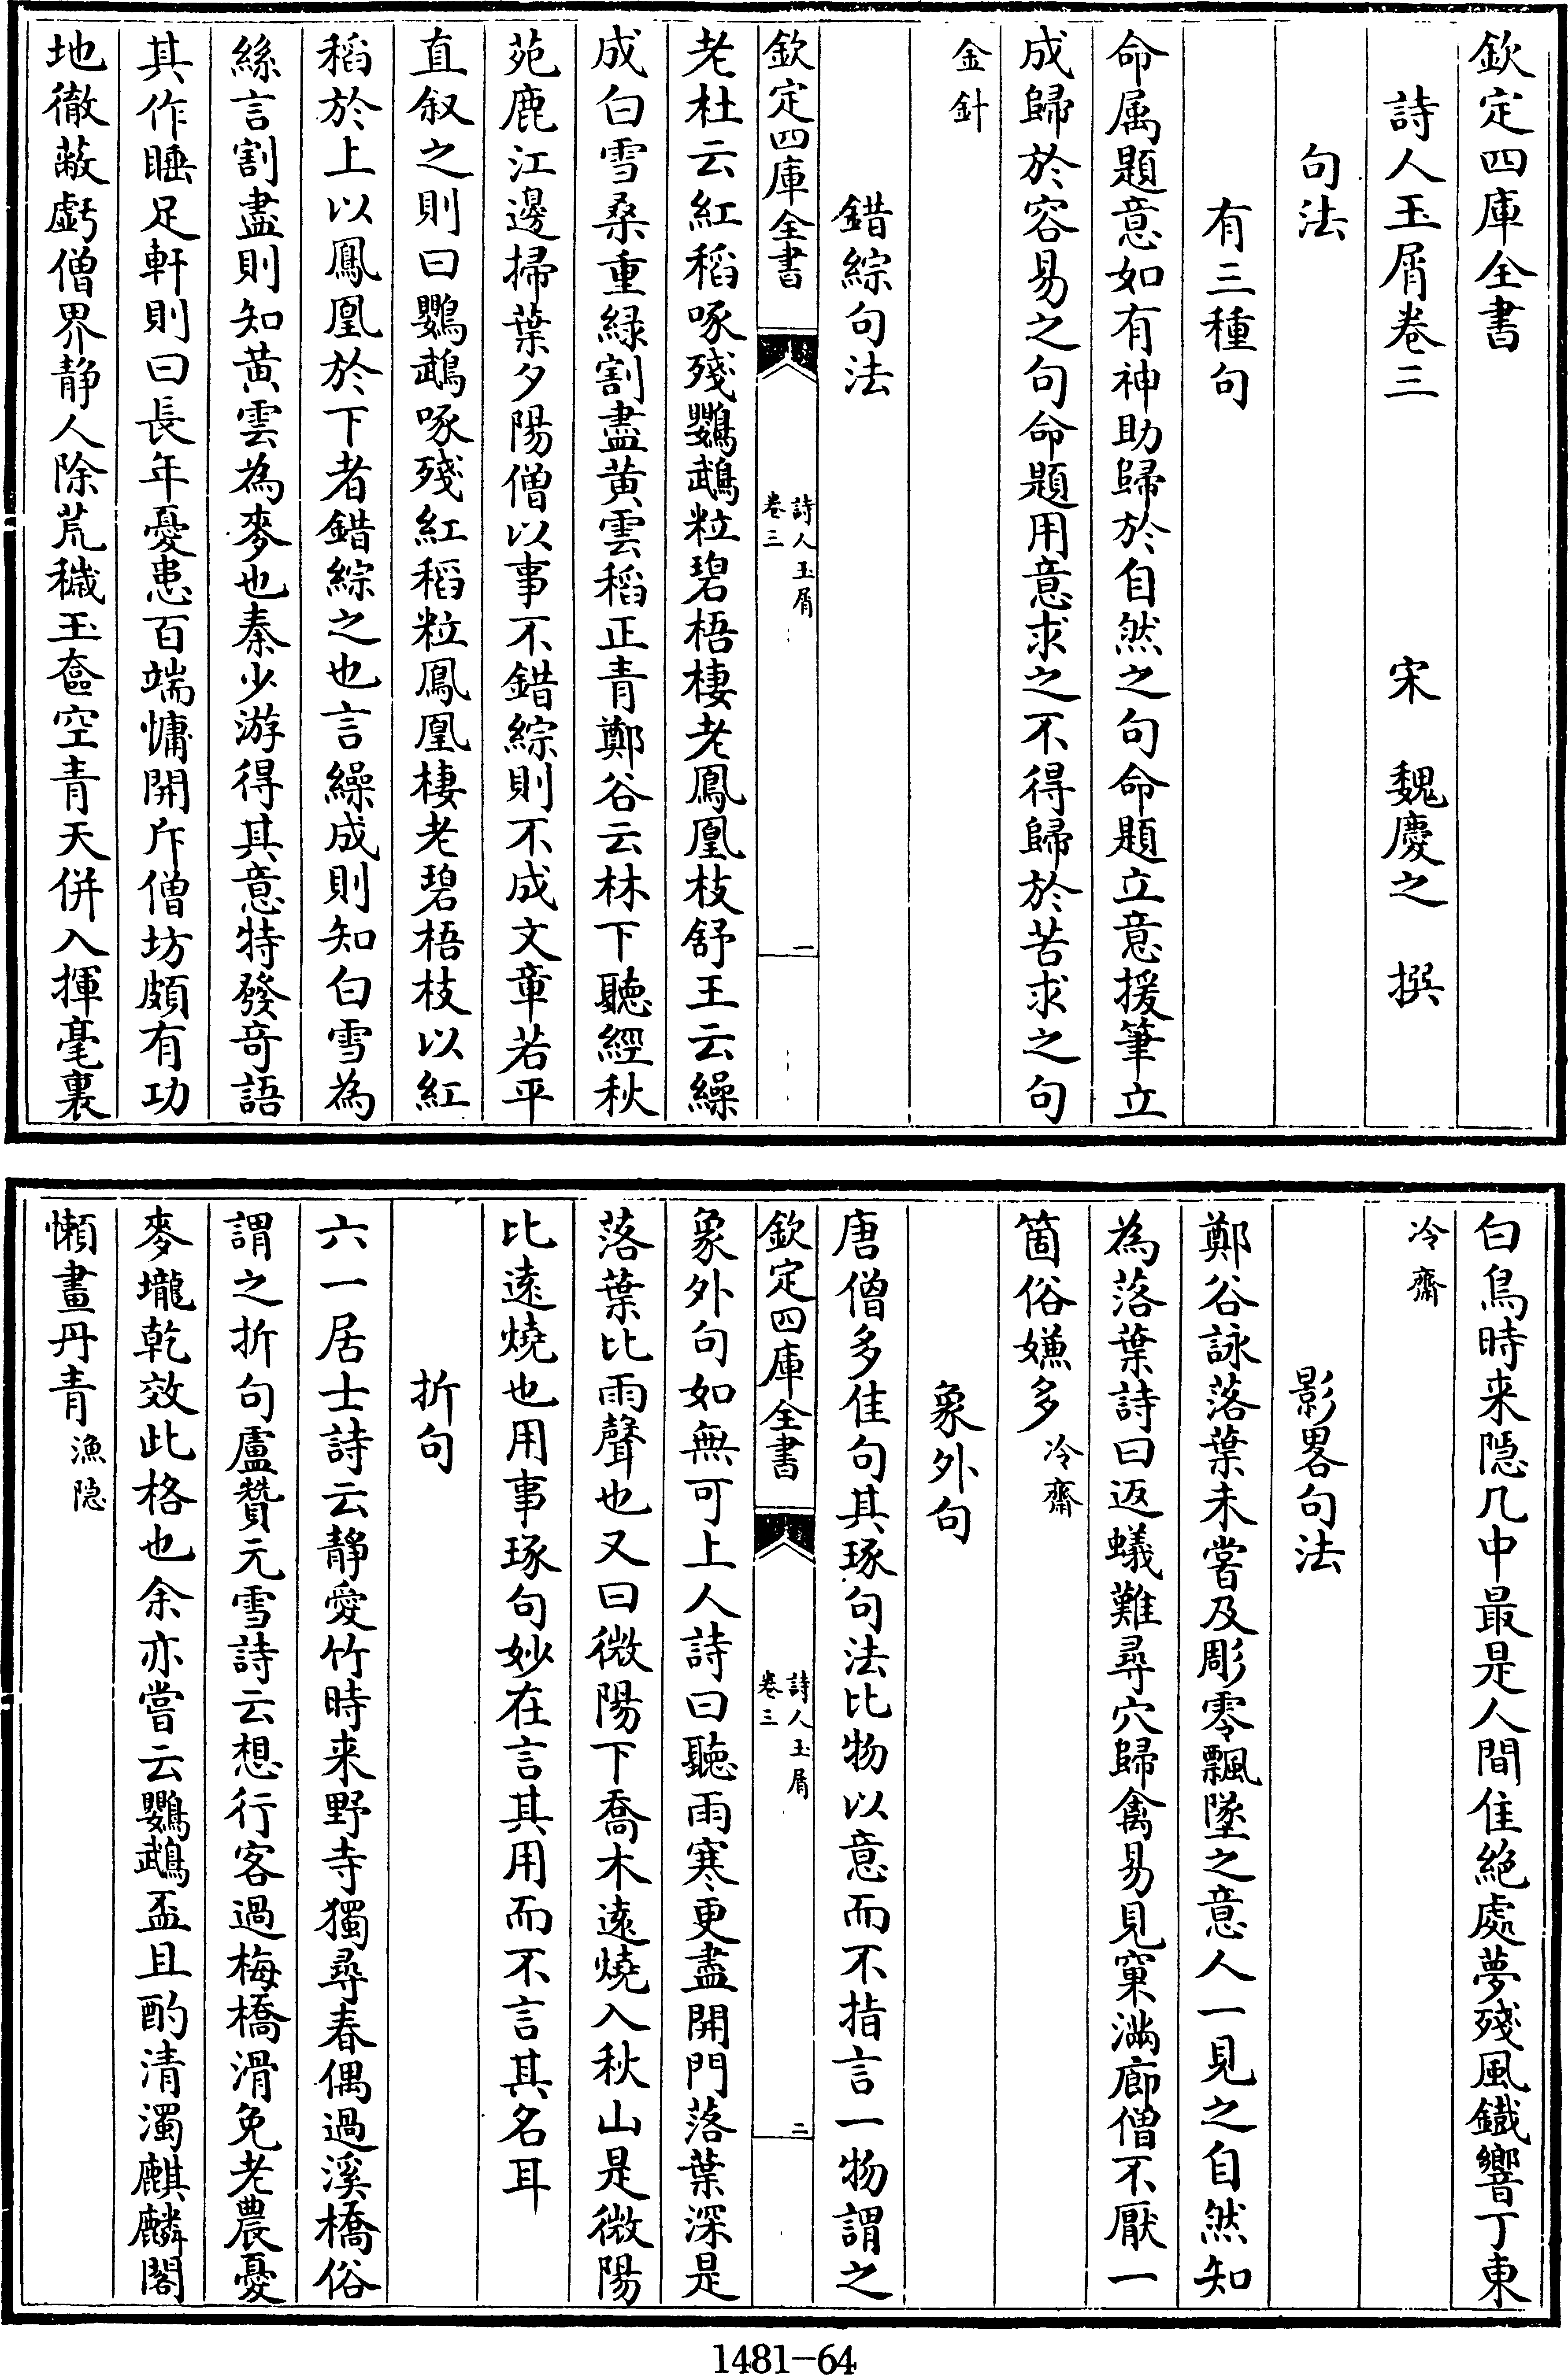 欽定四庫全書
詩人玉屑卷三　宋　魏慶之　撰
句法
有三種句
命属題意如有神助歸於自然之句命題立意援筆立
成歸於容易之句命題用意求之不得歸於苦求之句
金針
錯綜句法
欽定四庫全書　詩人玉屑　卷三　一
老杜云紅稻啄殘鸚鵡粒碧梧棲老鳳凰枝舒王云繰
成白雪桑重緑割盡黄雲稻正青鄭谷云林下聽經秋
苑鹿江邊掃葉夕陽僧以事不錯綜則不成文章若平
直叙之則曰鸚鵡啄殘紅稻粒鳳凰棲老碧梧枝以紅
稻於上以鳳凰於下者錯綜之也言繰成則知白雪為
絲言割盡則知黄雲為麥也秦少游得其意特發奇語
其作睡足軒則曰長年憂患百端慵開斥僧坊頗有功
地徹蔽虧僧界静人除荒穢玉奩空青天併入揮毫裏
白鳥時来隠几中最是人間佳絶處夢殘風鐵響丁東
冷齋
影畧句法
鄭谷詠落葉未嘗及彫零飄墜之意人一見之自然知
為落葉詩曰返蟻難尋穴歸禽易見窠滿廊僧不厭一
箇俗嫌多冷齋
象外句
唐僧多佳句其琢句法比物以意而不指言一物謂之
欽定四庫全書　詩人玉屑　卷三　二
象外句如無可上人詩曰聽雨寒更盡開門落葉深是
落葉比雨聲也又曰微陽下喬木遠燒入秋山是微陽
比遠燒也用事琢句妙在言其用而不言其名耳
折句
六一居士詩云静愛竹時来野寺獨尋春偶過溪橋俗
謂之折句盧贊元雪詩云想行客過梅橋滑免老農憂
麥壠乾效此格也余亦嘗云鸚鵡盃且酌清濁麒麟閣
懶畫丹青漁隠
1481-64